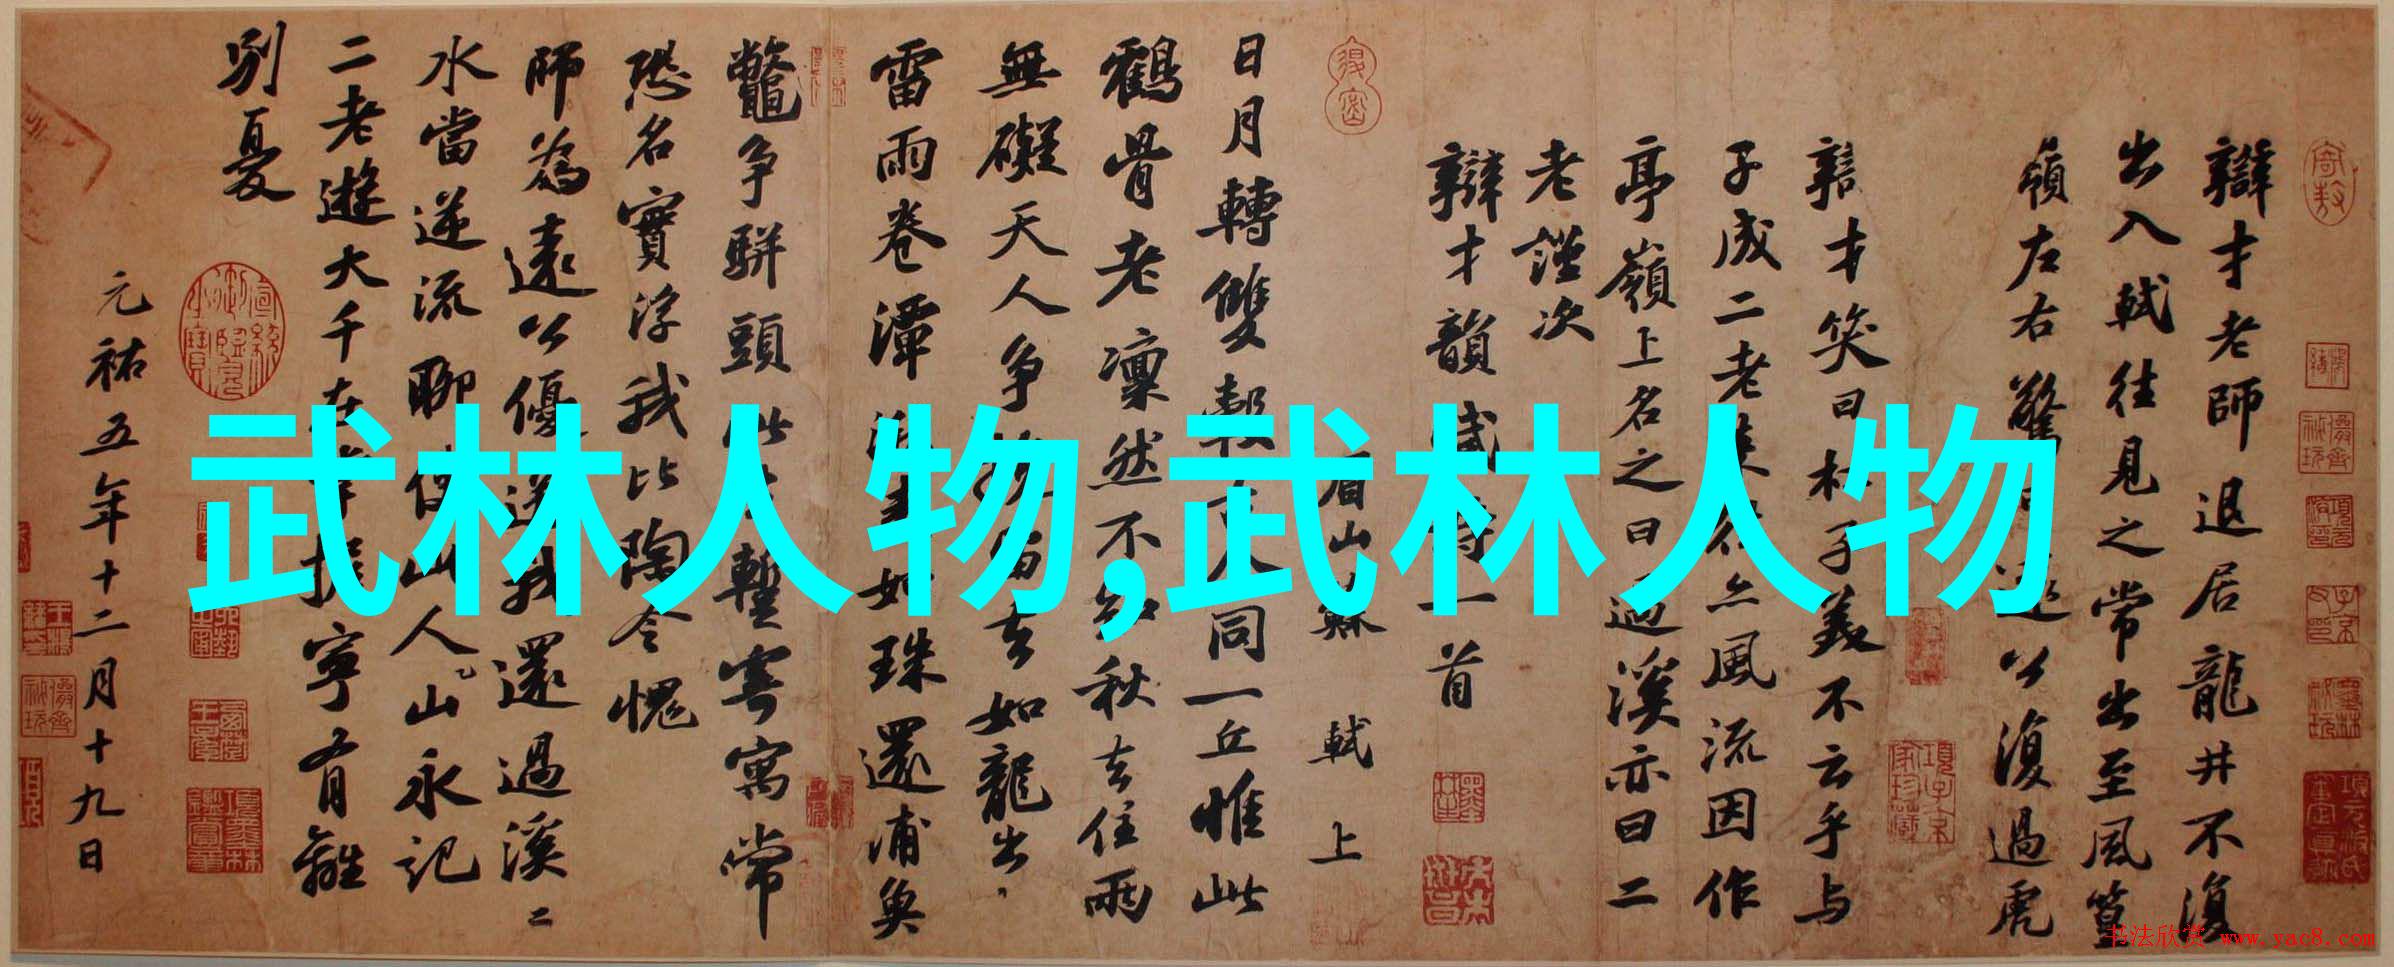 辯才老師退居龍井不復
出入軾往見之常出至風篁
嶺左右驚曰遠公復過虎
辯才笑曰杜子美不云乎与
子成二老來往亦風流因作
亭嶺上名之曰過溪亦曰二
老謹次
辯才韻賦詩一首
眉山蘇 軾 上
日月轉雙轂古人同一丘惟此
鶴骨老凜然不知秋去住兩
無礙天人爭挽留去如龍出
雷雨卷潭湫來如珠還浦魚
鼈爭駢頭此生暫寄寓常
恐名實浮我比陶令愧
師為遠公優送我還過溪二
水當逆流聊使此山人山永記
二老遊大千在掌握寧有離
別憂
元祐五年十二月十九日
武林人物,武林人物
书法欣赏 www.yac8.com